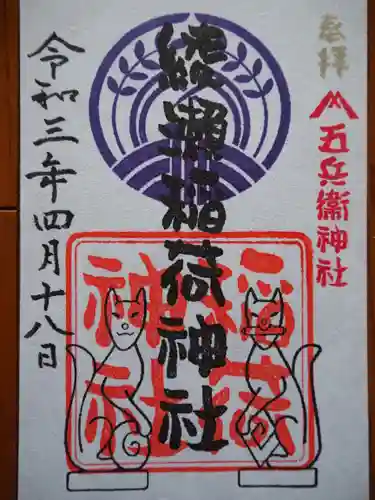 奉拝
五兵衛神社
綾瀬稲荷神社
稲荷
神社
令和三年四月十八日